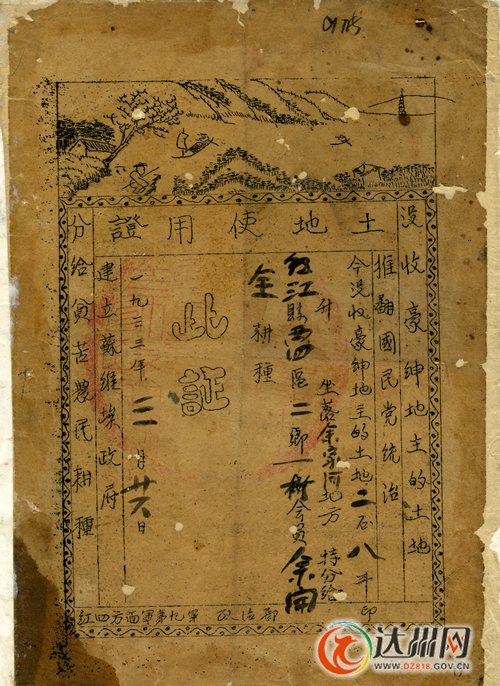 土地使用證
没收豪紳地主的土地
推翻國民党統治
今没收豪紳地主的土地二石八斗
升 坐落余家河地方 特分给
红江縣區二鄉一村会員余開
全耕種
此証
一九三三年月廿六日
建立蘇維埃政府
分给貧苦農民耕種
红四方面軍第九軍 政治部 印
达州网
WWW.DZ818.GOV.CN